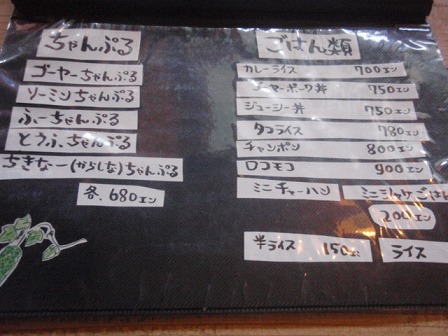 ちゃんぷる
ゴーヤーちゃんぷる
ソーミンちゃんぷる
ふーちゃんぷる
とうふちゃんぷる
ちきなー(からしな)ちゃんぷる
各.680エン
ごはん類
カレーライス 700エン
ゴーヤーポーク丼 750エン
ジューシー丼 750エン
タコライス 780エン
チャンポン 800エン
ロコモコ 900エン
ミニチャーハン ミニジャケごはん
200エン
半ライス 150エン ライス